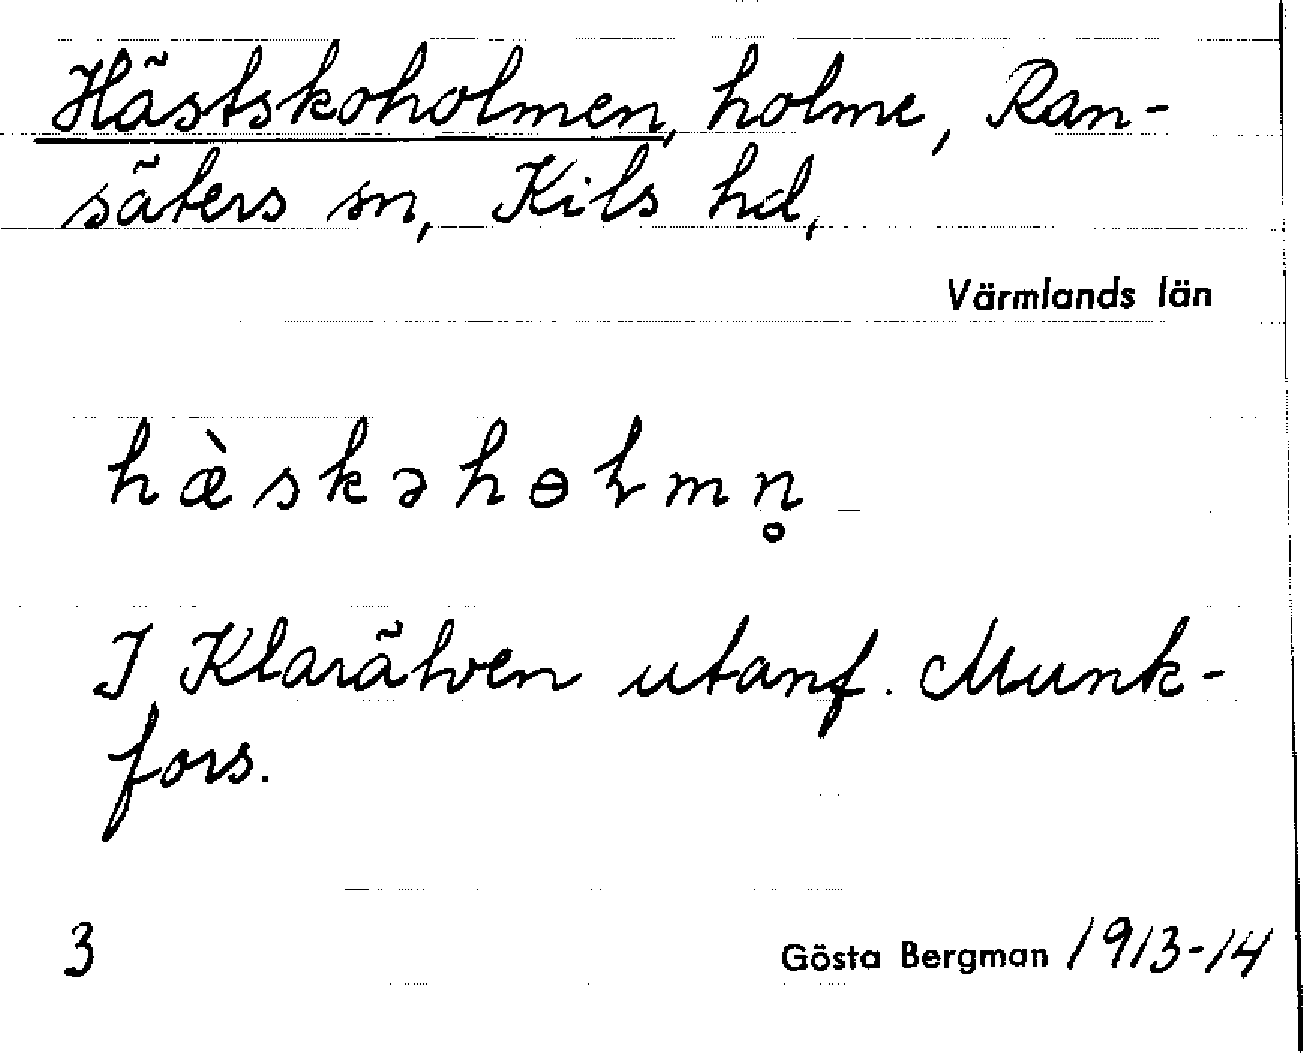 Hästskoholmen, holme, Ran-
säters sn, Kils hd,
Värmlands län
hæ̀skəhɵɫmn̥
I Klarälven utanf. Munk-
fors.
3 Gösta Bergman 1913-14